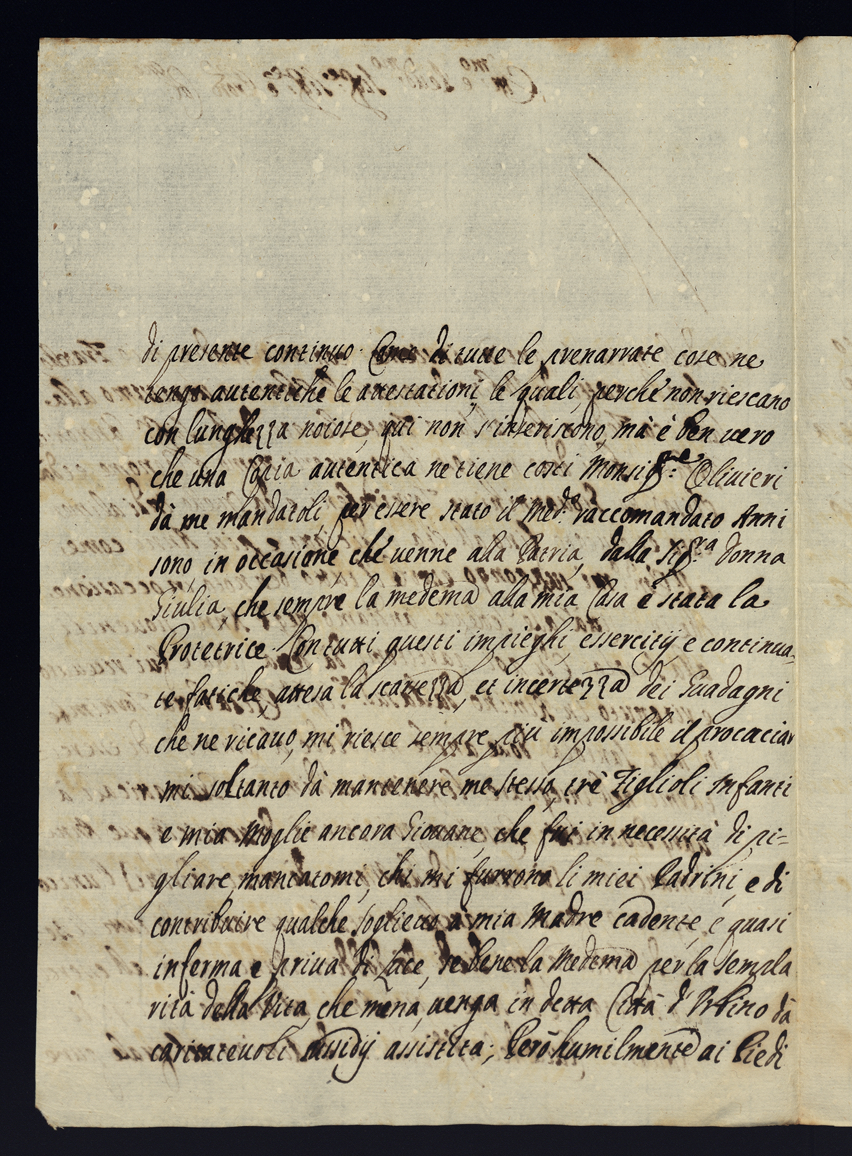 di presente continuo. Come di tutte le prenarrate cose ne
tengo autentiche le attestationi, le quali, perche' non riescano
con lunghezza noiose, qui non s'inseriscono, mà è ben vero
che una Copia autentica ne tiene costì Monsig.re Olivieri
dà me mandatoli, per essere stato il med.o raccomandato Anni
sono, in occasione che' venne alla Patria, dalla Sig.ra Donna
Giulia, che sempre la medema alla mia Casa è stata la
Protetrice. Con tutti questi impieghi, essercitij e continua-
te fatiche, attesa la scarsezza, et incertezza dei Guadagni
che ne ricauo, mi riesce sempre più impossibile il procacciar
mi soltanto dà mantenere me stesso, trè Figlioli Infanti
e mia Moglie ancora Giouane, che fui in necessità di pi-
gliare, mancatomi, chi mi furrono li miei Padrini, e di
contribuire qualche soglieuo à mia Madre cadente, e quasi
inferma e priua di luce, se bene la Medema per la sempla
rità della Vita, che mena, uenga in detta Città d'Urbino dà
caritateuoli sussidij assistita; Però humilmente ai Piedi